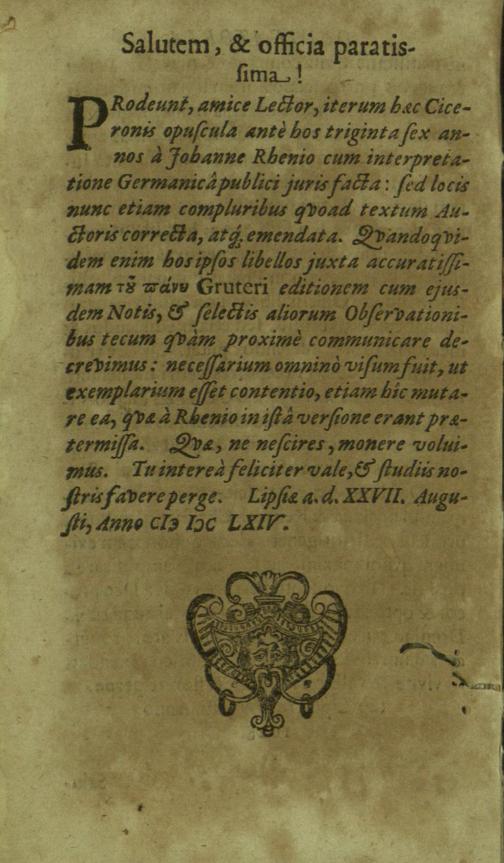 Salutem, & officia paratis-
sima!
PRodeunt, amice Lector, iterum hæc Cice-
ronis opuscula antè hos triginta sex an-
nos à Johanne Rhenio cum interpreta-
tione Germanicâ publici juris facta: sed locis
nunc etiam compluribus qvoad textum Au-
ctoris correcta, atq́; emendata. Qvandoqvi-
dem enim hos ipsos libellos juxta accuratissi-
mam τῦ πάνυ Gruteri editionem cum ejus-
dem Notis, & selectis aliorum Observationi-
bus tecum qvàm proximè communicare de-
crevimus: necessarium omninò visum fuit, ut
exemplarium esset contentio, etiam hîc muta-
re ea, qvæ à Rhenio in istâ versione erant præ-
termissa. Qvæ, ne nescires, monere volui-
mus. Tu intereà feliciter vale, & studiis no-
stris favere perge. Lipsiæ a. d. XXVII. Augu-
sti, Anno CIↃ IↃC LXIV.